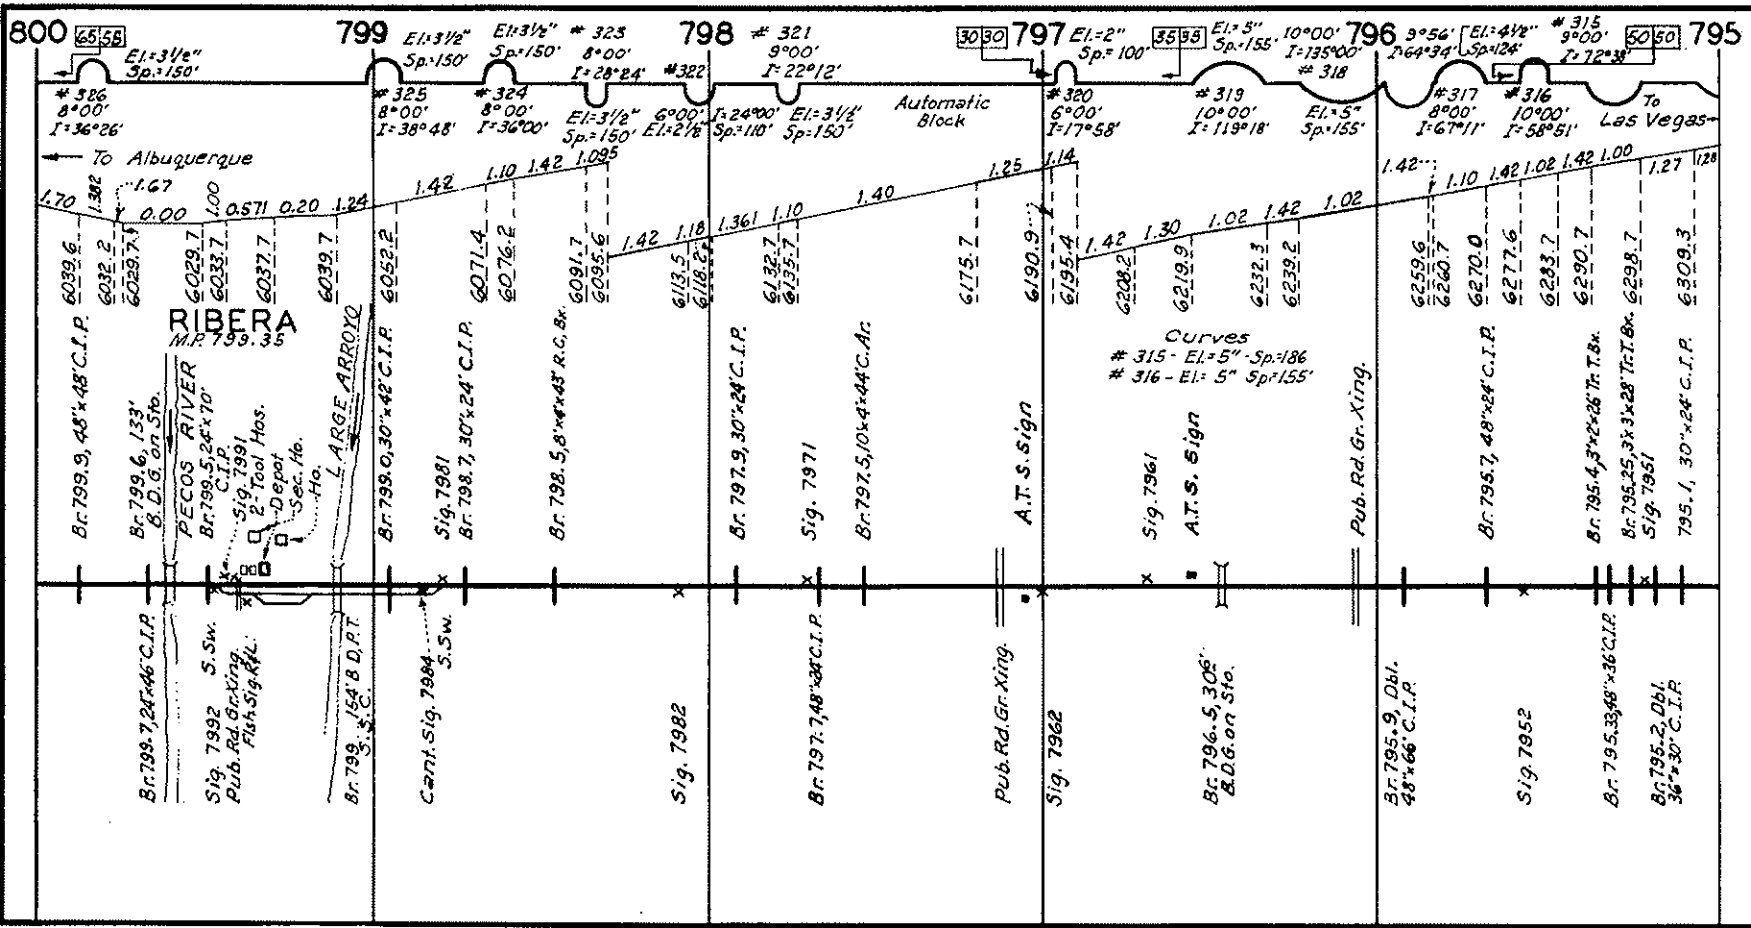 800
65 55
El.=3½"
Sp.=150'
799
El.=3½"
Sp.=150'
El.=3½"
Sp.=150'
# 323
8°00'
I=28°24'
798
# 321
9°00'
I=22°12'
30 30
797
El.=2"
Sp.=100'
35 35
El.=5"
Sp.=155'
10°00'
I=135°00'
# 318
796
9°56'
I=64°34'
El.=4½"
Sp.=124'
# 315
9°00'
I=72°38'
50 50
795
# 326
8°00'
I=36°26'
# 325
8°00'
I=38°48'
# 324
8°00'
I=36°00'
El.=3½"
Sp.=150'
#322
6°00'
El.=2½"
I=24°00'
Sp.=110'
El.=3½"
Sp.=150'
Automatic
Block
#320
6°00'
I=17°58'
#319
10°00'
I=119°18'
El.=5"
Sp.=155'
#317
8°00'
I=67°11'
#316
10°00'
I=58°51'
To
Las Vegas
To Albuquerque
1.70
1.382
1.67
0.00
1.00
0.571
0.20
1.24
1.42
1.10
1.42
1.095
1.42
1.18
1.361
1.10
1.40
1.25
1.14
1.42
1.30
1.02
1.42
1.02
1.42
1.10
1.42
1.02
1.42
1.00
1.27
1.28
6039.6
6032.2
6029.7
6029.7
6033.7
6037.7
6039.7
6052.2
6071.4
6076.2
6091.7
6095.6
6113.5
6118.2
6132.7
6135.7
6175.7
6190.9
6195.4
6208.2
6219.9
6232.3
6239.2
6259.6
6260.7
6270.0
6277.6
6283.7
6290.7
6298.7
6309.3
RIBERA
M.P. 799.35
Curves
# 315 - El.=5" - Sp.=186
# 316 - El.= 5" Sp.=155'
Br. 799.9, 48"x48' C.I.P.
Br. 799.6, 133'
B.D.G. on Sto.
PECOS RIVER
Br. 799.5, 24"x70'
C.I.P.
Sig. 7991
2-Tool Hos.
Depot
Sec. Ho.
Ho.
LARGE ARROYO
Br. 799.0, 30"x42' C.I.P.
Sig. 7981
Br. 798.7, 30"x24' C.I.P.
Br. 798.5, 8'x4'x43' R.C. Bx.
Br. 797.9, 30"x24' C.I.P.
Sig. 7971
Br. 797.5, 10'x4'x44' C. Ar.
A.T.S. Sign
Sig. 7961
A.T.S. Sign
Pub. Rd. Gr. Xing.
Br. 795.7, 48"x24' C.I.P.
Br. 795.4, 3'x2'x26' Tr. T. Bx.
Br. 795.25, 3'x3'x28' Tr. T. Bx.
Sig. 7951
795.1, 30"x24' C.I.P.
Br. 799.7, 24"x46' C.I.P.
Sig. 7992
S. Sw.
Pub. Rd. Gr. Xing.
Fish Sig. R&L.
Br. 799 154' B D.P.T.
S.S.C.
Cant. Sig. 7984
S. Sw.
Sig. 7982
Br. 797.7, 48"x24' C.I.P.
Pub. Rd. Gr. Xing.
Sig. 7962
Br. 796.5, 306'
B.D.G. on Sto.
Br. 795.9, Dbl.
48"x66' C.I.P.
Sig. 7952
Br. 795.33, 48"x36' C.I.P.
Br. 795.2, Dbl.
36"x30' C.I.P.